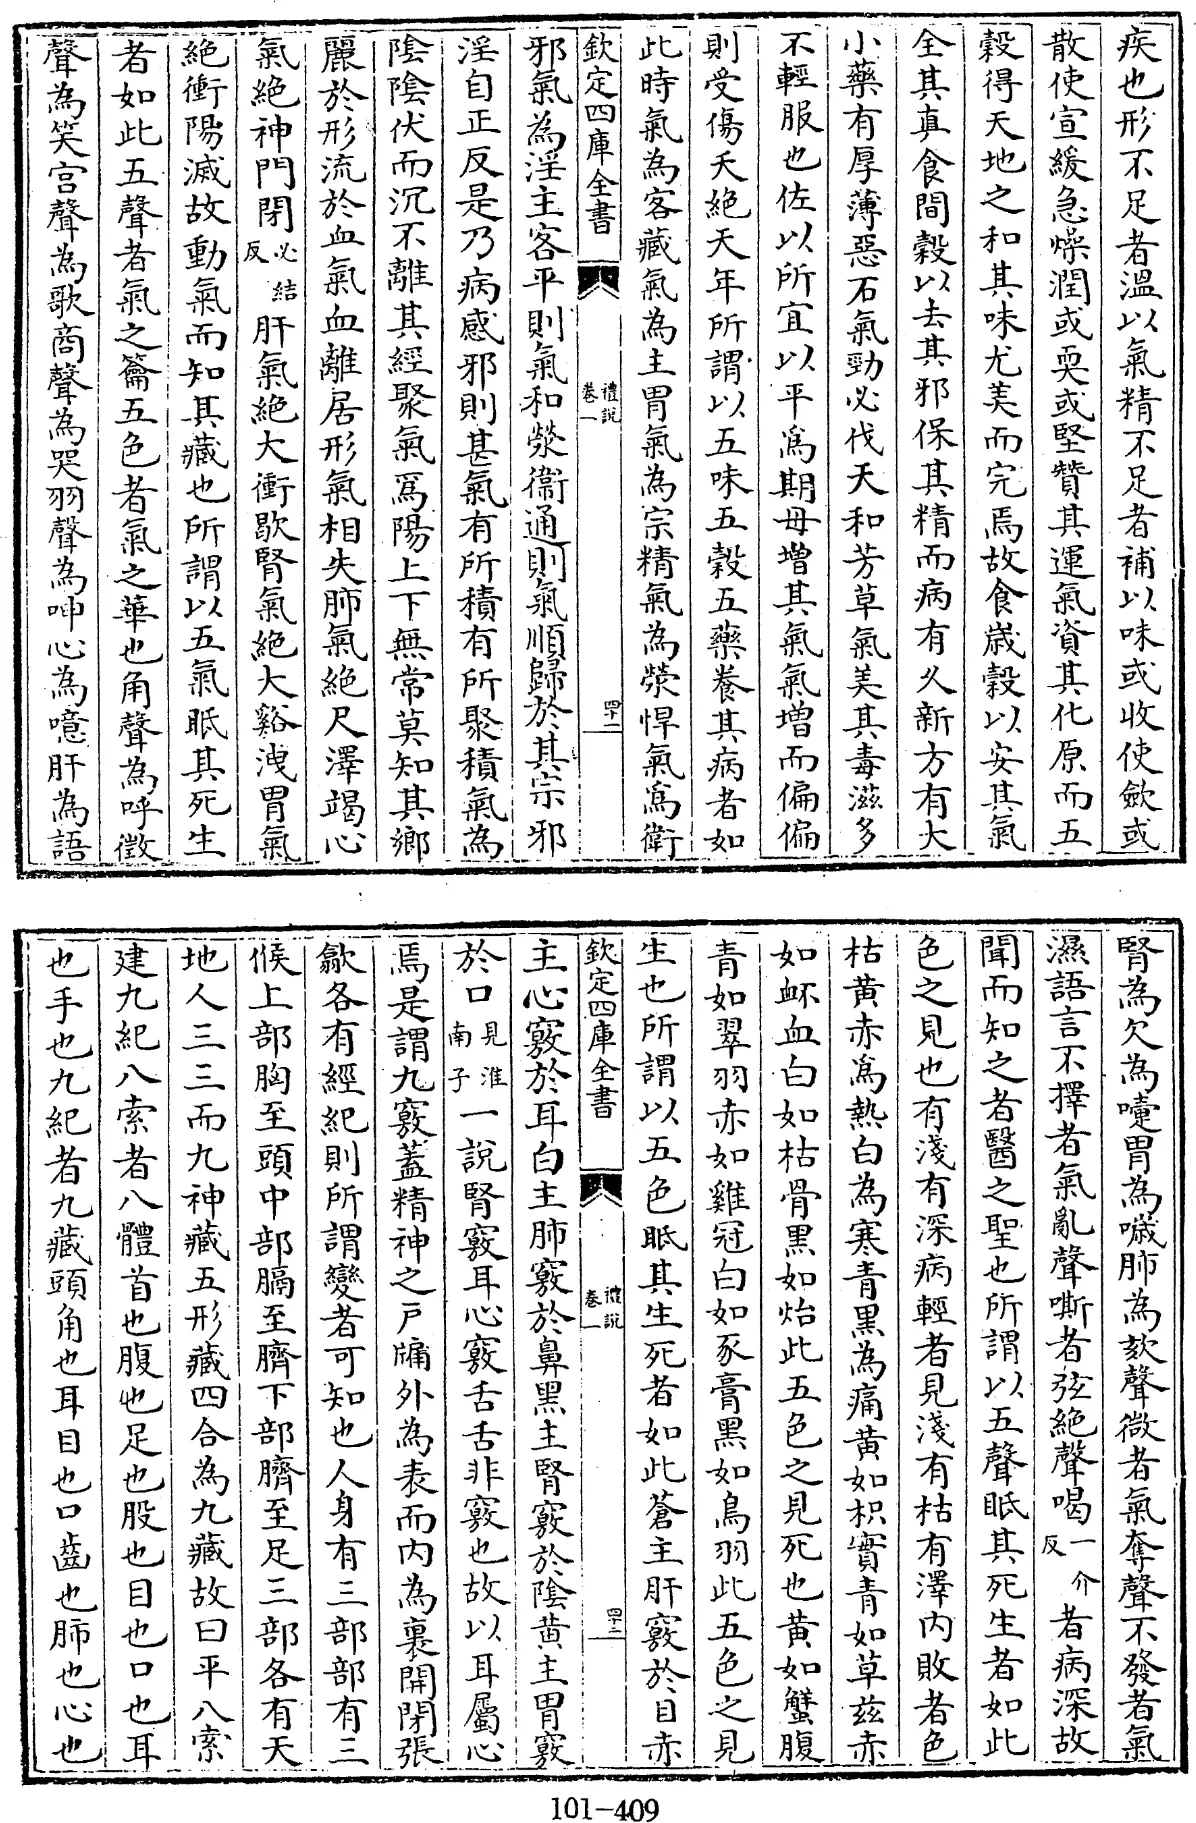 疾也形不足者溫以氣精不足者補以味或收使斂或
散使宣緩急燥潤或耎或堅贊其運氣資其化原而五
穀得天地之和其味尤美而完焉故食嵗穀以安其氣
全其真食間穀以去其邪保其精而病有久新方有大
小藥有厚薄惡石氣勁必伐天和芳草氣美其毒滋多
不輕服也佐以所宜以平為期毋增其氣氣増而偏偏
則受傷夭絶天年所謂以五味五穀五藥養其病者如
此時氣為客藏氣為主胃氣為宗精氣為滎悍氣為衛
欽定四庫全書
禮說
卷一
四十二
邪氣為淫主客平則氣和滎衞通則氣順歸於其宗邪
淫自正反是乃病感邪則甚氣有所積有所聚積氣為
陰陰伏而沉不離其經聚氣為陽上下無常莫知其鄉
麗於形流於血氣血離居形氣相失肺氣絶尺澤竭心
氣絶神門閉必結反肝氣絶大衝歇腎氣絶大谿洩胃氣
絶衝陽滅故動氣而知其藏也所謂以五氣眂其死生
者如此五聲者氣之籥五色者氣之華也角聲為呼徵
聲為笑宫聲為歌商聲為哭羽聲為呻心為噫肝為語
腎為欠為嚏胃為噦肺為欬聲微者氣奪聲不發者氣
濕語言不擇者氣亂聲嘶者弦絶聲喝一介反者病深故
聞而知之者醫之聖也所謂以五聲眂其死生者如此
色之見也有淺有深病輕者見淺有枯有澤内敗者色
枯黄赤為熱白為寒青黒為痛黄如枳實青如草兹赤
如衃血白如枯骨黒如炲此五色之見死也黄如蟹腹
青如翠羽赤如雞冠白如豕膏黒如烏羽此五色之見
生也所謂以五色眂其生死者如此蒼主肝竅於目赤
欽定四庫全書
禮說
卷一
四十二
主心竅於耳白主肺竅於鼻黒主腎竅於陰黄主胃竅
於口見淮南子一說腎竅耳心竅舌舌非竅也故以耳屬心
焉是謂九竅蓋精神之戸牖外為表而内為裏開閉張
歙各有經紀則所謂變者可知也人身有三部部有三
候上部胸至頭中部膈至臍下部臍至足三部各有天
地人三三而九神藏五形藏四合為九藏故曰平八索
建九紀八索者八體首也腹也足也股也目也口也耳
也手也九紀者九藏頭角也耳目也口齒也肺也心也
101-409